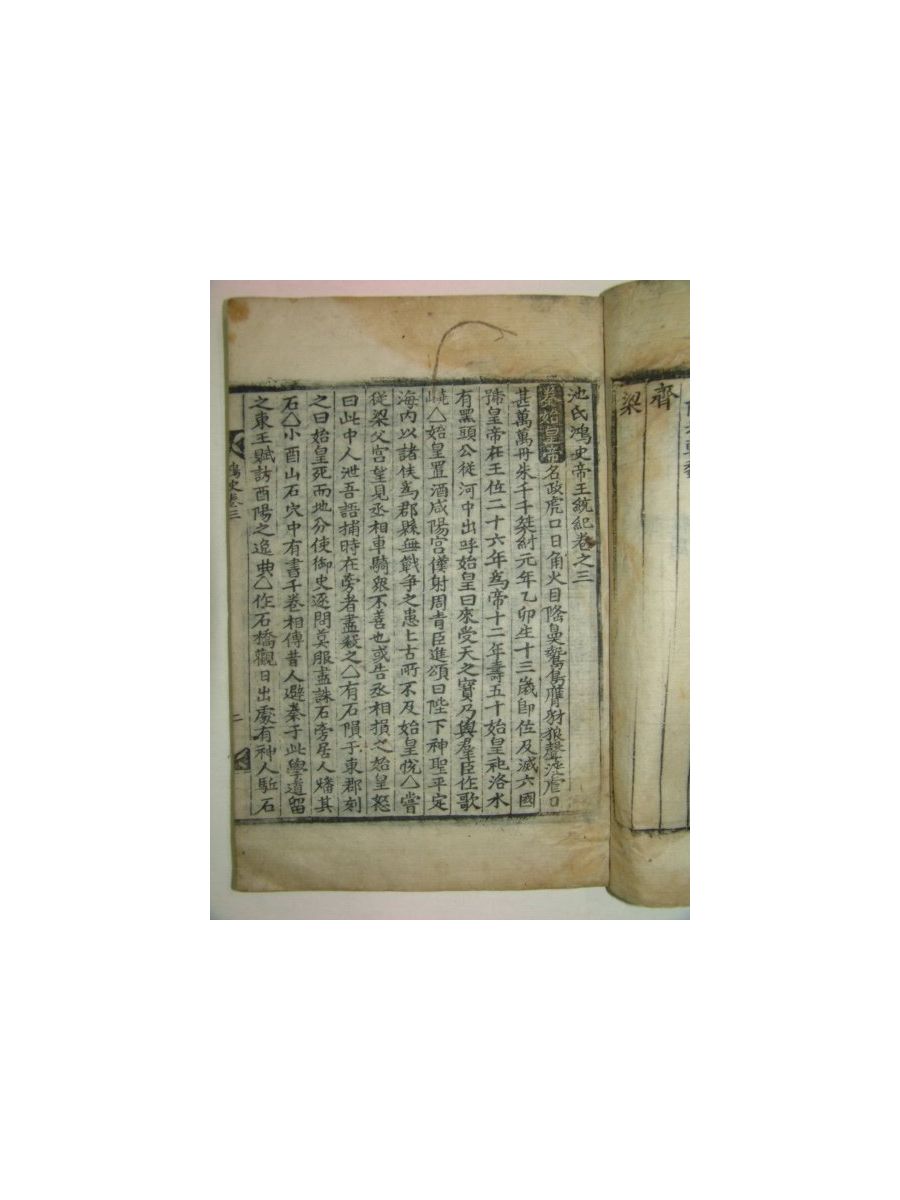 齊
梁
池氏鴻史帝王統紀卷之三
秦始皇帝名政虎口日角火目隆鼻鷙鳥膺豺狼聲
甚萬萬丹朱千千桀紂元年乙卯生十三歲即位及滅六國
號皇帝在王位二十六年爲帝十二年壽五十始皇祀洛水
有黑頭公從河中出呼始皇曰來受天之寶乃與羣臣作歌
△始皇置酒咸陽宮僕射周靑臣進頌曰陛下神聖平定
海內以諸侯爲郡縣無戰爭之患上古所不及始皇悅△嘗
從梁父宮望見丞相車騎衆不善也或告丞相損之始皇怒
曰此中人泄吾語捕時在旁者盡殺之△有石隕于東郡刻
之曰始皇死而地分使御史逐問莫服盡誅石旁居人燔其
石△小酉山石穴中有書千卷相傳昔人避秦于此學道留
之東王賦訪酉陽之逸典△作石橋觀日出處有神人駈石
鴻史卷三
二